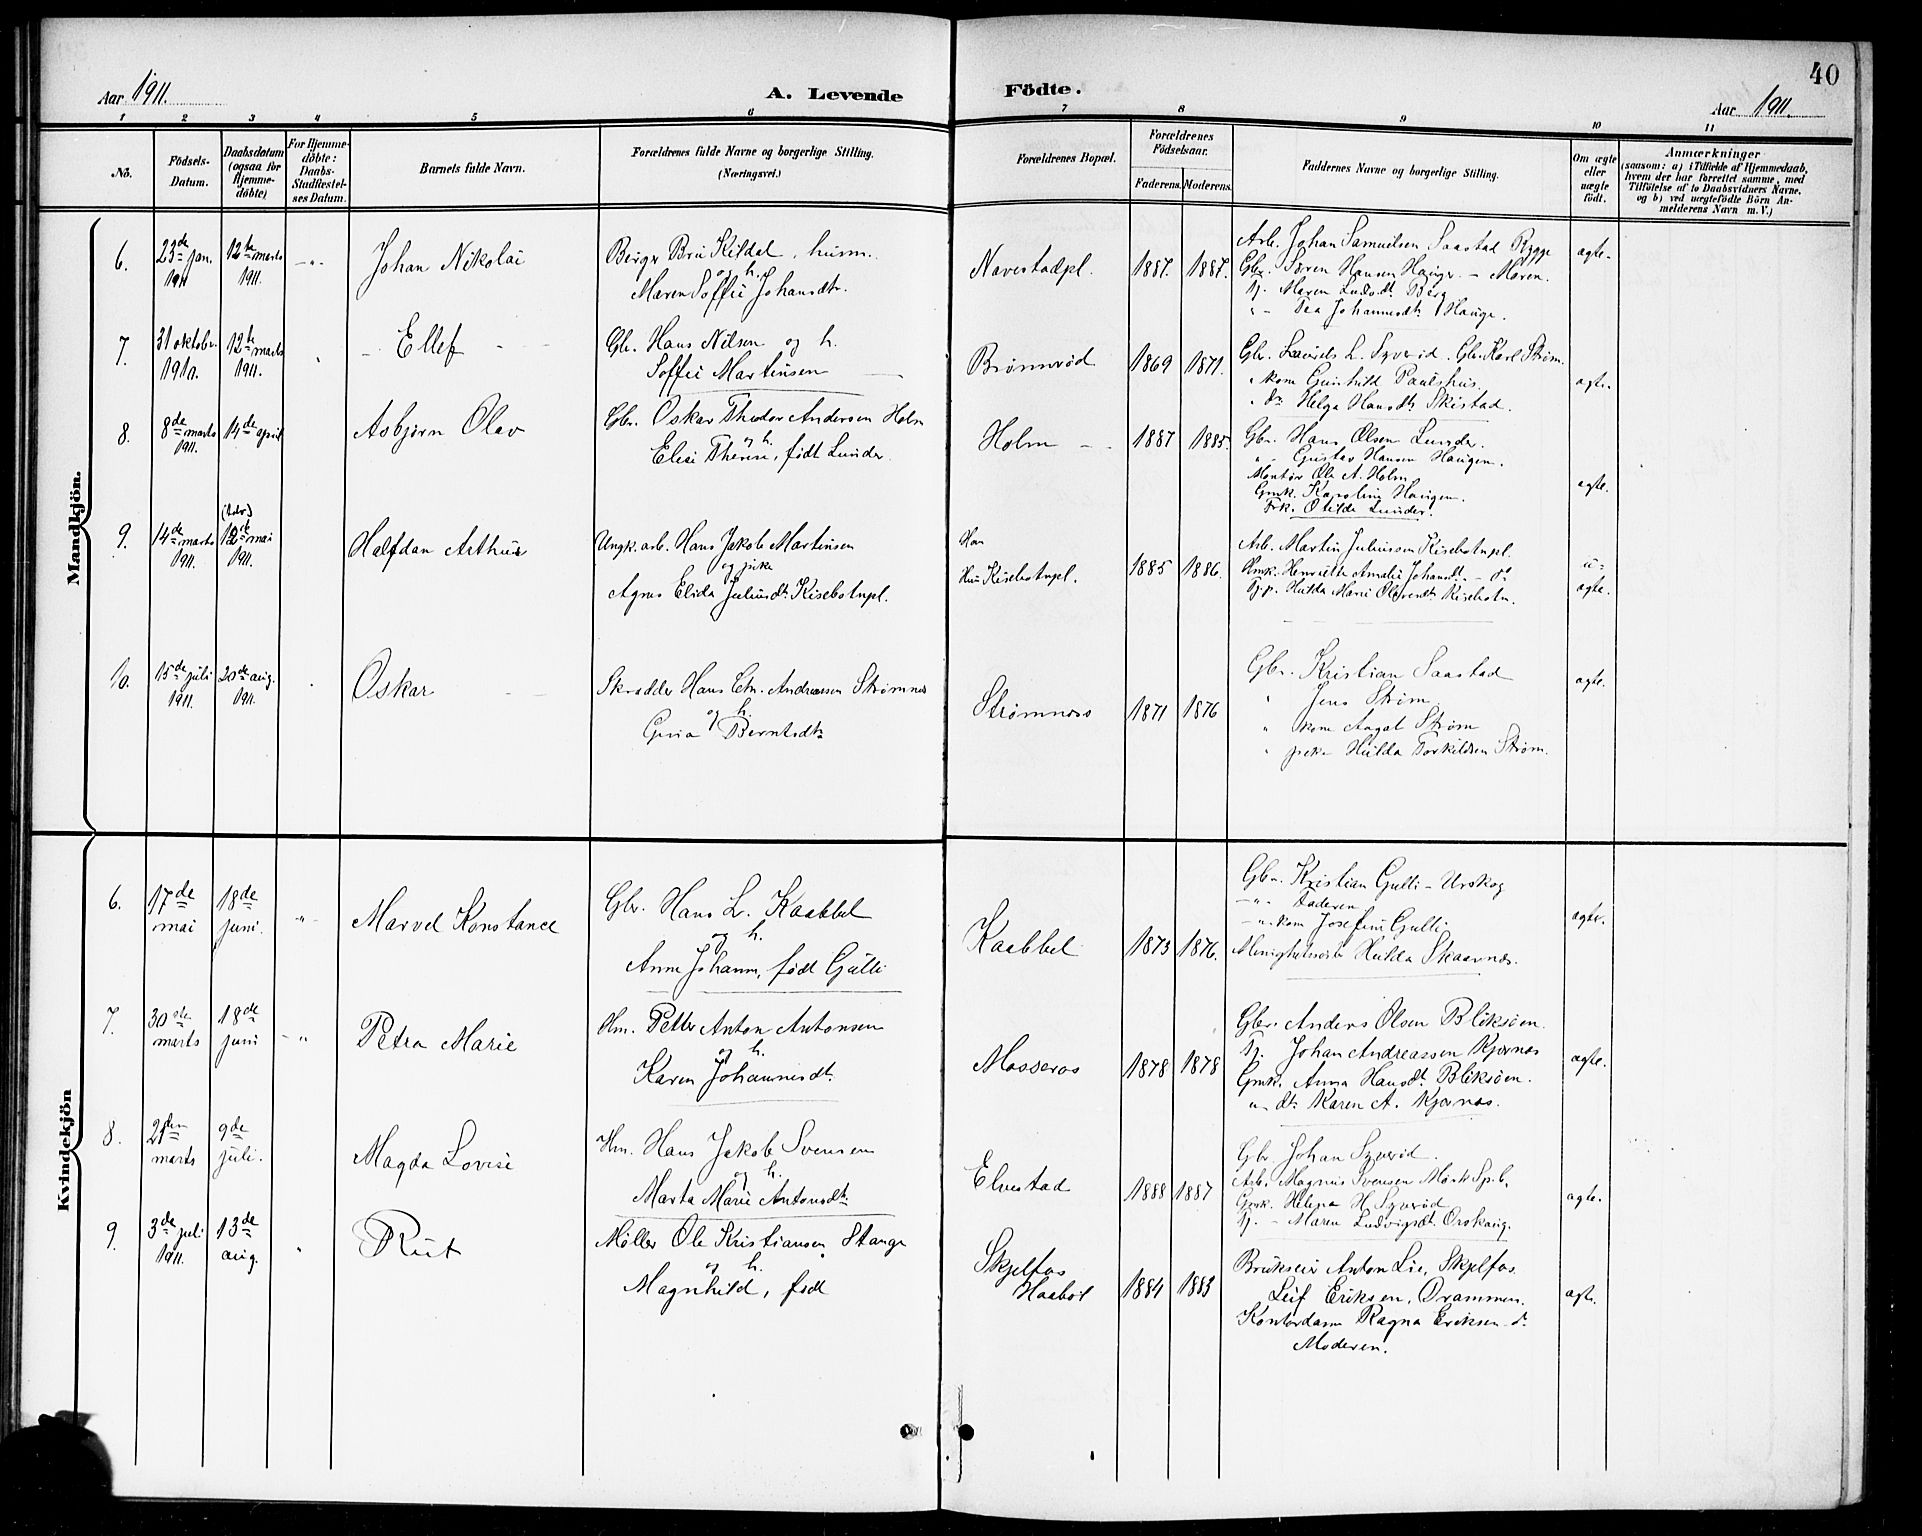 40
Aar 1911.
A. Levende
Födte.
Aar 1911.
1 2 3 4 5 6 7 8 9 10 11
No.
Födsels-
Datum.
Daabsdatum
(ogsaa for
Hjemme-
döbte)
For Hjemme-
döbte:
Daabs-
Stadfestel-
ses Datum.
Barnets fulde Navn.
Forældrenes fulde Navne og borgerlige Stilling.
(Næringsvei.)
Forældrenes Bopæl.
Forældrenes
Födselsaar.
Faderens. Moderens.
Faddernes Navne og borgerlige Stilling.
Om ægte
eller
uægte
födt.
Anmærkninger
(saasom: a) i Tilfælde af Hjemmedaab,
hvem der har forrettet samme, med
Tilföielse af to Daabsvidners Navne,
og b) ved uægtefödte Börn An-
melderens Navn m. V.)
Mandkjön.
6.
23de jan.
1911
12te marts
1911.
Johan Nikolai
Berger Bru Kildal, husm.
og h.
Maren Soffie Johansdtr.
Navestadpl.
1887. 1887.
Arb. Johan Samuelsen Saastad Rygge
Gbr. Søren Hansen Hauger - Moren.
Tj. Maren Ludvdt. Berg
" - Tea Johannesdt. Hauge.
ægte.
7.
31 oktobr.
1910.
12te marts
1911.
Ellef
Gbr. Hans Nilsen og h.
Soffie Martinsen
Brønnerød
1869 1871.
Gbr. Laurits L. Syverød. Gbr. Karl Strøm.
" kone Gunhild Paulshus.
" dr. Helga Hansdt. Skistad.
ægte.
8.
8de marts
1911.
14de april
Asbjørn Olav
Gbr. Oskar Theodor Andersen Holm
og h.
Elise Therese, født Lunder.
Holm
1887 1885.
Gbr. Hans Olsen Lunder.
" - Gustav Hansen Haugen.
Montør Ole A. Holm
Gmk. Karoline Haugen.
Frk. Otilde Lunder.
ægte.
9.
14de marts
1911.
12de mai
1911.
Halfdan Arthur
Ungk. arb. Hans Jakob Martinsen
og pike
Agnes Elida Juliusdt. Kisebotnpl.
Han
Hun Kisebotnpl.
1885 1886.
Arb. Martin Juliussen Kisebotnpl.
Hmk. Henriette Amalie Johansdt. - do
Tj.p. Hulda Marie Olavesdt. Kisebotn.
u-
ægte.
10.
15de juli
1911.
20de aug.
1911.
Oskar
Skrædder Hans Chr. Andreassen Strømnes
og h.
Gina Berntsdtr
Strømnæss
1871 1876
Gbr. Kristian Saastad
" Jens Strøm
" kone Aagot Strøm
" pike Hulda Torkildsen Strøm.
ægte.
Kvindekjön
6.
17de
mai
18de
juni.
Marvel Konstance
Gbr. Hans L. Kaabbel
og h.
Anne Johanne, født Gulli
Kaabbel
1873 1876.
Gbr. Kristian Gulli - Urskog
-"- Faderen
-"- kone Josefine Gulli
Menighetssøster Hulda Skaarnæs.
ægte.
7.
30te
marts
18de
juni
Petra Marie
Hm. Petter Anton Antonsen
og h.
Karen Johannesdt.
Mosseros
1878 1878
Gbr. Anders Olsen Bliksøen.
Tj. Johan Andreassen Kjærnes
Gmk. Anna Hansdt. Bliksøen.
"- dt. Karen A. Kjærnæs.
ægte.
8.
21de
marts
9de
juli.
Magda Lovise
Hm. Hans Jakob Svensen
og h.
Marta Marie Antonsdt.
Elvestad
1888 1887
Gbr. Johan Syverød.
Arb. Magnus Svensen Mørk Spb.
Gmk. Helena H. Syverød
Tj. - Maren Ludvigsdt. Orskaug.
ægte.
9.
3de juli
1911.
13de
aug.
Rut
Møller Ole Kristiansen Stange
og h.
Magnhild, født
Skjelfos
Haabøl
1884 1883
Brukseier Anton Lie, Skjelfos.
Leif Eriksen, Drammen.
Kontordame Ragna Eriksen do
Moderen.
ægte.